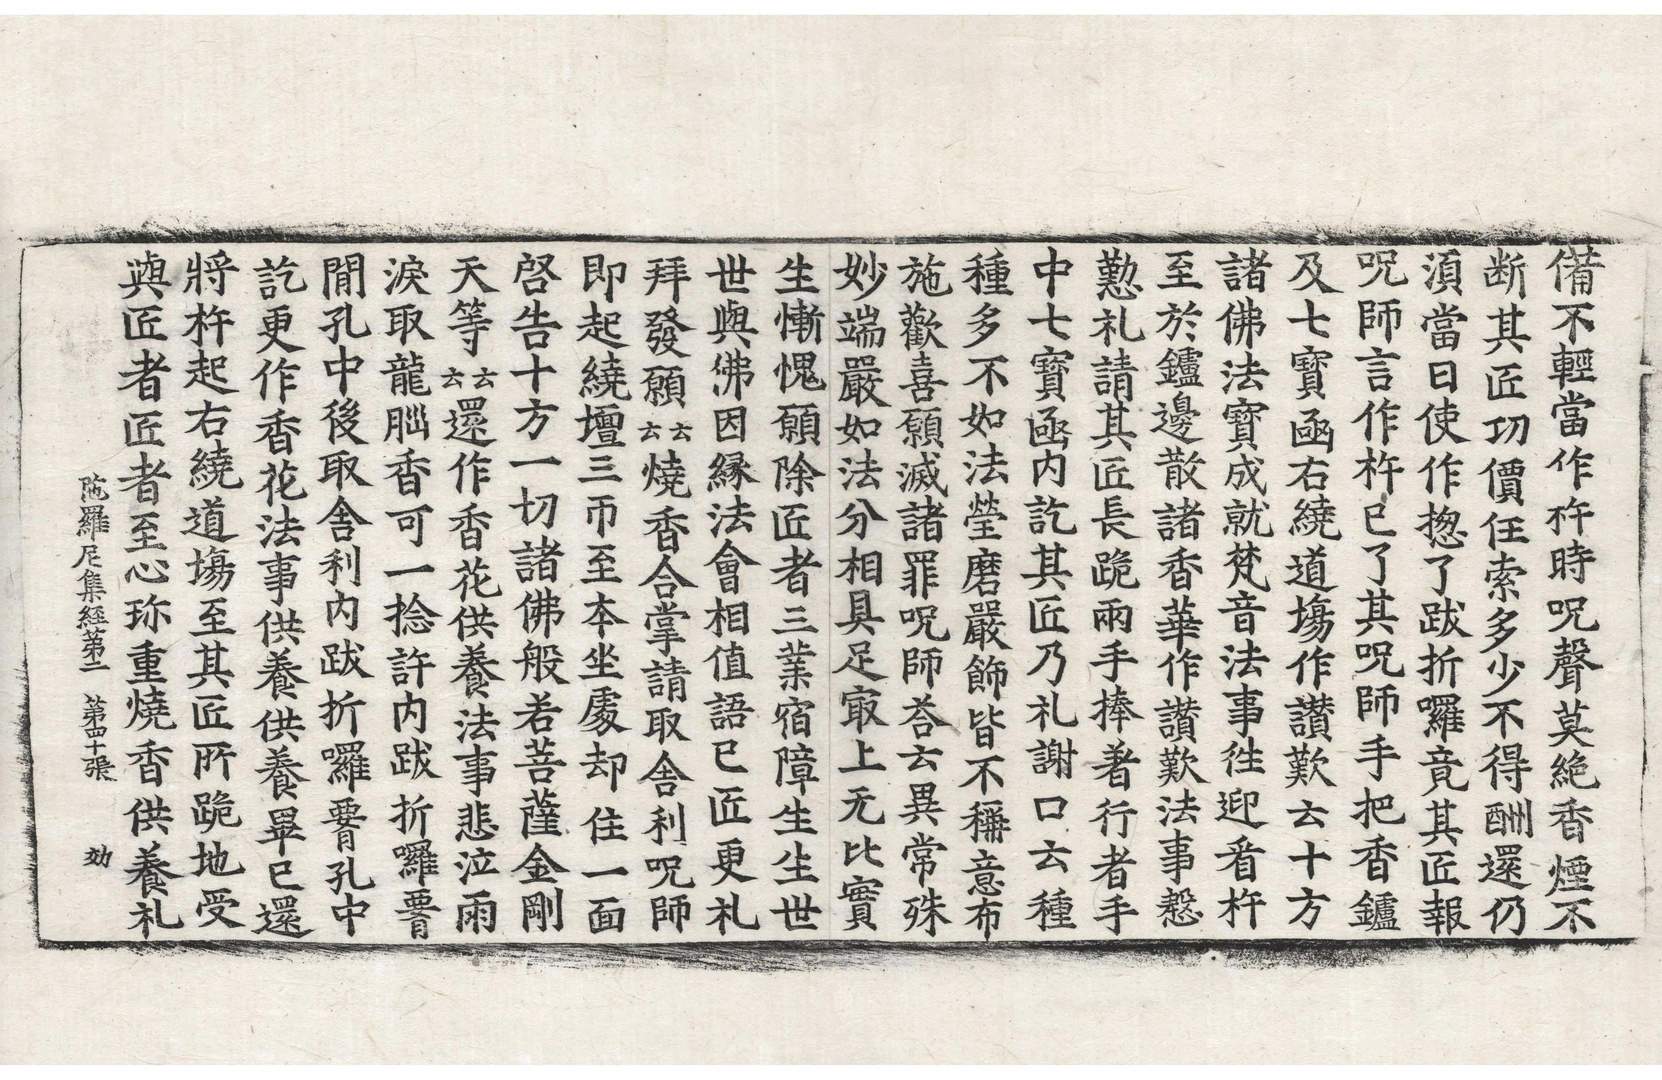 備不輕當作杵時呪聲莫絶香煙不
断其匠功價任索多少不得酬還仍
湏當日使作揔了跋折囉竟其匠報
呪師言作杵已了其呪師手把香鑪
及七寳函右繞道塲作讃歎云十方
諸佛法寳成就梵音法事徃迎看杵
至於鑪邊散諸香華作讃歎法事慇
懃礼請其匠長跪兩手捧著行者手
中七寳函内訖其匠乃礼謝口云種
種多不如法瑩磨嚴飾皆不稱意布
施歡喜願滅諸罪呪師荅云異常殊
妙端嚴如法分相具足㝡上无比實
生慚愧願除匠者三業宿障生生世
世與佛因縁法會相值語已匠更礼
拜發願云云燒香合掌請取舍利呪師
即起繞壇三帀至本坐處却住一面
啓告十方一切諸佛般若菩薩金剛
天等云云還作香花供養法事悲泣雨
淚取龍腦香可一捻許内跋折囉䯒
閒孔中後取舍利内跋折囉䯒孔中
訖更作香花法事供養供養畢已還
將杵起右繞道塲至其匠所跪地受
與匠者匠者至心珎重燒香供養礼
陁羅尼集經第二　第四十張　効